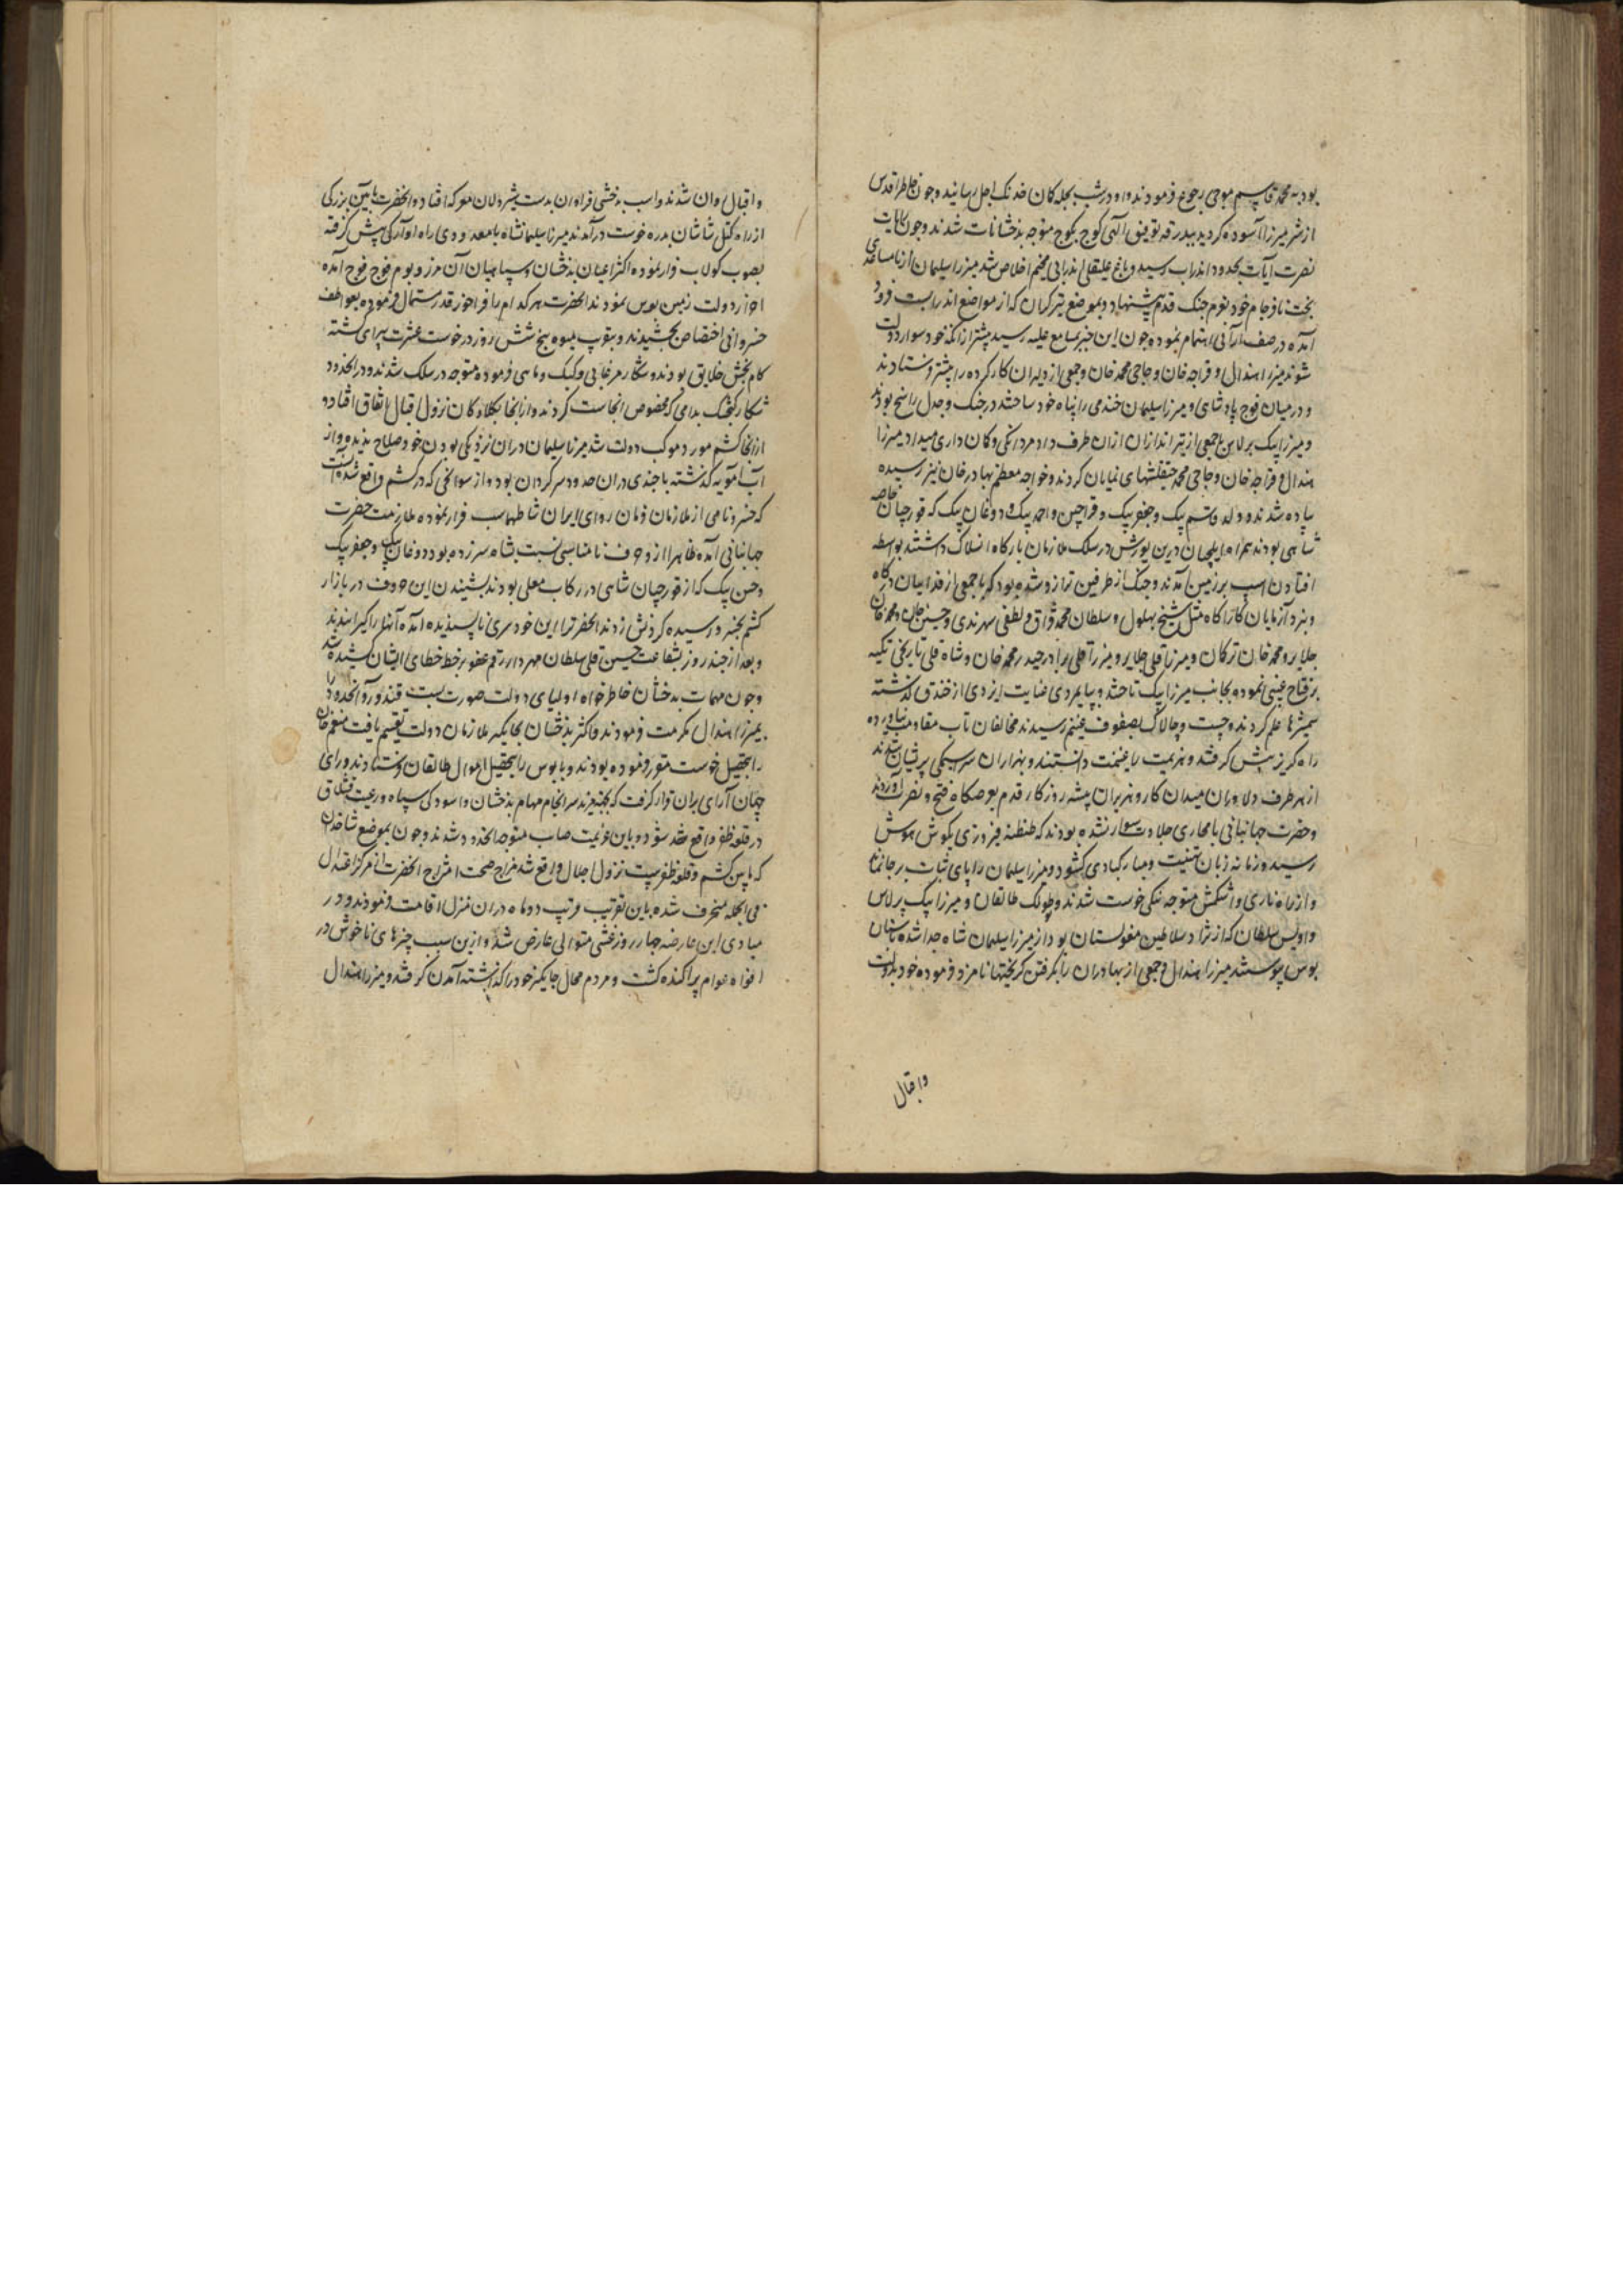 بود به محمد قاسم موجی رجوع فرمودند و او در شب بچله کمان خدنک اجل رسانید و چون خاطر اقدس
از شر میرزا آسوده کردید ببدرقه توفیق الهی کوچ بکوچ متوجه بدخشانات شدند و چون رایات
نصرت آیات بحدود اندراب رسید و باغ علیقلی اندرابی مخیم اخلاص شد میرزا سلیمان از نامساعدی
بخت نافرجام خود بعزم جنک قدم پیش نهاد و بموضع تیرکران که از مواضع اندرابست فرود
آمده در صف آرائی اهتمام نموده چون این خبر بمسامع علیه رسید پیشتر از آنکه خود سوار دولت
شوند میرزا هندال و قراجه خان و حاجی محمد خان و جمعی از دلیران کار کرده را پیشتر فرستادند
و در میان فوج پادشاهی و میرزا سلیمان خندقی را پناه خود ساخته در جنک و جدل راسخ بودند
و میرزا بیک برلاس با جمعی از تیراندازان ازان طرف داد مردانکی و کمان داری میداد میرزا
هندال و قراجه خان و حاجی محمد چپقلشهای نمایان کردند و خواجه معظم بهادر خان نیز رسیده
پیاده شدند و ولد قاسم بیک و جعفر بیک و قراچین و احمد بیک و دوغان بیک که قورچیان خاصه
شاهی بودند همراه ایلچیان درین یورش در سلک ملازمان بارکاه انسلاک داشتند بواسطه
افتادن اسب بر زمین آمدند و جنک از طرفین ترازو شده بود که با جمعی از فدائیان درکاه
و نبرد آزمایان کارآکاه مثل شیخ بهلول و سلطان محمد فواق و لطفی سهرندی و حسین خان و محمد خان
جلایر و محمد خان ترکمان و میرزا قلی جلایر و میرزا قلی برادر حیدر محمد خان و شاه قلی نارنجی تکیه
بر فتاح غیبی نموده بجانب میرزا بیک تاختند و بپایمردی عنایت ایزدی از خندق کذشته
شمشرها علم کردند و چست و چالاک بصفوف غنیم رسیدند مخالفان تاب مقاومت نیاورده
راه کریز پیش کرفتند و هزیمت را غنیمت دانستند و بهزاران سراسیمکی پریشان شدند
از هر طرف دلاوران میدان کار و هزبران بیشه روزکار قدم بعرصکاه فتح و نصرت آوردند
و حضرت جهانبانی با مجاری جلادت سوار نشده بودند که طنطنه فیروزی بکوش هوش
رسید و زمانه زبان تهنیت و مبارکبادی کشود و میرزا سلیمان را پای ثبات بر جا نماند
و از راه ناری و اشکمش متوجه تنکی خوست شدند و تولک طالقان و میرزا بیک برلاس
و اویس سلطان که از نژاد سلاطین مغولستان بود از میرزا سلیمان شاه جدا شده بآستان
بوس پیوستند میرزا هندال و جمعی از بهادران را بکرفتن کریختها نامزد فرموده خود بدولت
و اقبال
و اقبال روان شدند و اسب بدخشی فراوان بدست شیردلان معرکه افتاد و آنحضرت بآیین بزرکی
از راه کتل شاشان بدره خوست درآمدند میرزا سلیمانشاه با معدودی راه آوارکی پیش کرفته
بصوب کولاب فرار نموده اکثر اعیان بدخشان و سپاهیان آن مرز و بوم فوج فوج آمده
احراز دولت زمین بوس نمودند آنحضرت هر کدام را فراخور قدر استمال فرموده بعواطف
خسروانی اختصاص بخشیدند و بتقریب میوه پنج شش روز در خوست عشرت پیرای کشته
کام بخش خلایق بودند و شکار مرغابی و کبک و ماهی فرموده متوجه درسلک شدند و در آنحدود
شکار کنجشک بدامی که مخصوص آنجاست کردند و از آنجا بکلاوکان نزول اقبال اتفاق افتاد و
از آنجا کشم مورد موکب دولت شد میرزا سلیمان دران نزدیکی بودن خود صلاح ندیده و از
آب آمویه کذشته با چندی دران حدود سرکردان بود و از سوانحی که در کشم واقع شد آنست
که خسرو نامی از ملازمان فرمان روای ایران شاه طهماسب فرار نموده ملازمت حضرت
جهانبانی آمده ظاهرا ازو حرف نامناسبی نسبت بشاه سر زده بود دوغان بیک و جعفر بیک
و حسن بیک که از قورچیان شاهی در رکاب معلی بودند بشنیدن این حروف در بازار
کشم بخسرو رسیده کردنش زدند آنحضرت را این خودسری ناپسندیده آمده آنها را کیرانیدند
و بعد از چند روز بشفاعت حسین قلی سلطان مهردار رقم عفو بر خط خطای ایشان کشیده شد
و چون مهمات بدخشان خاطرخواه اولیای دولت صورت بست قندوز و آنحدود را
بمیرزا هندال مکرمت فرمودند و اکثر بدخشان بجایکیر ملازمان دولت تقسیم یافت منعم خان
را بتحصیل خوست مقرر فرموده بودند و بابوس را بتحصیل اموال طالقان فرستادند و رای
جهان آرای بران قرار کرفت که بجهت مزید سرانجام مهام بدخشان و آسودکی سپاه و رعیت قشلاق
در قلعه ظفر واقع شود و باین عزیمت صایب متوجه آنحدود شدند و چون بموضع شاخدان
که مابین کشم و قلعه ظفرست نزول اجلال واقع شد مزاج صحت امتزاج آنحضرت از مرکز اعتدال
فی الجمله منحرف شده باین تقریب قریب دو ماه دران منزل اقامت فرمودند و در
مبادی این عارضه چهار روز غشی متوالی عارض شد و ازین سبب چیزهای ناخوش در
افواه عوام پراکنده کشت و مردم محال جایکیر خود را کذاشته آمدن کرفتند و میرزا هندال